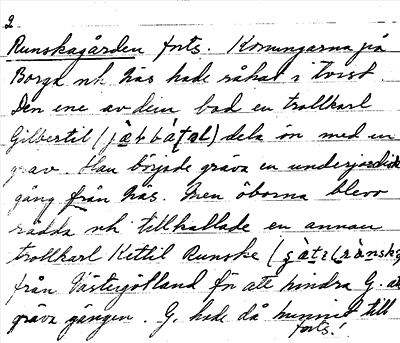 2.
Runskagården forts. Konungarna på
Borga nh Näs hade råkat i tvist.
Den ene av dem bad en trollkarl
Gilbertil (jə̀lbə̀təl) dela ön med en
grav. Han började gräva en underjordisk
gång från Näs. Men öborna blevo
rädda nh tillkallade en annan
trollkarl Kettil Runske
från Västergötland för att hindra G. att
gräva gången. G. hade då hunnit till
forts!